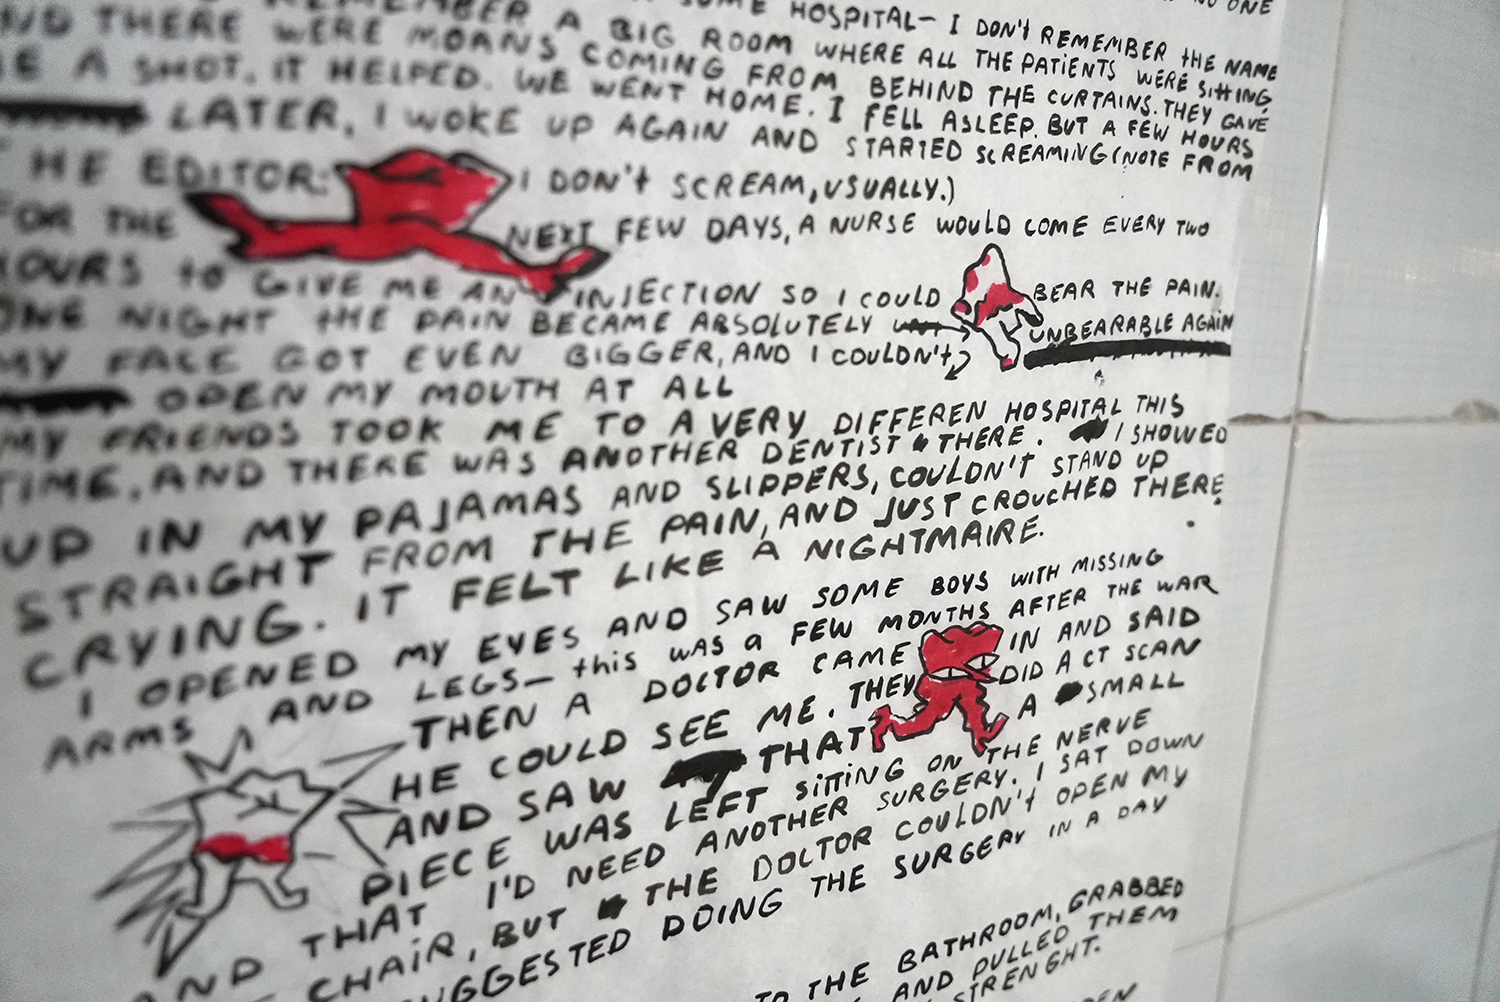 NO ONE
REMEMBER A BIG ROOM WHERE ALL THE PATIENTS WERE SITTING,
SOME HOSPITAL— I DON'T REMEMBER THE NAME
AND THERE WERE MOANS COMING FROM BEHIND THE CURTAINS. THEY GAVE
ME A SHOT. IT HELPED. WE WENT HOME. I FELL ASLEEP. BUT A FEW HOURS
LATER, I WOKE UP AGAIN AND STARTED SCREAMING (NOTE FROM
THE EDITOR: I DON'T SCREAM, USUALLY.)
FOR THE NEXT FEW DAYS, A NURSE WOULD COME EVERY TWO
HOURS to GIVE ME AN INJECTION SO I COULD BEAR THE PAIN.
ONE NIGHT tHE PAIN BECAME ABSOLUTELY UNBEARABLE AGAIN
MY FACE GOT EVEN BIGGER, AND I COULDN't
OPEN MY MOUTH AT ALL
MY FRIENDS TOOK ME TO A VERY DIFFEREN HOSPITAL THIS
TIME, AND THERE WAS ANOTHER DENTIST THERE. I SHOWED
UP IN MY PAJAMAS AND SLIPPERS, COULDN'T STAND UP
STRAIGHT FROM THE PAIN, AND JUST CROUCHED THERE
CRYING. IT FELT LIKE A NIGHTMAIRE.
I OPENED MY EYES AND SAW SOME BOYS WITH MISSING
ARMS AND LEGS— this WAS a FEW MONTHS AFTER THE WAR
THEN A DOCTOR CAME IN AND SAID
HE COULD SEE ME. THEY DID A CT SCAN
AND SAW THAT A SMALL
PIECE WAS LEFT SITTING ON THE NERVE
AND THAT I'D NEED ANOTHER SURGERY. I SAT DOWN
CHAIR, BUT THE DOCTOR COULDN't OPEN MY
SUGGESTED DOING THE SURGERY IN A DAY
TO THE BATHROOM, GRABBED
AND PULLED THEM
STRENGHT.